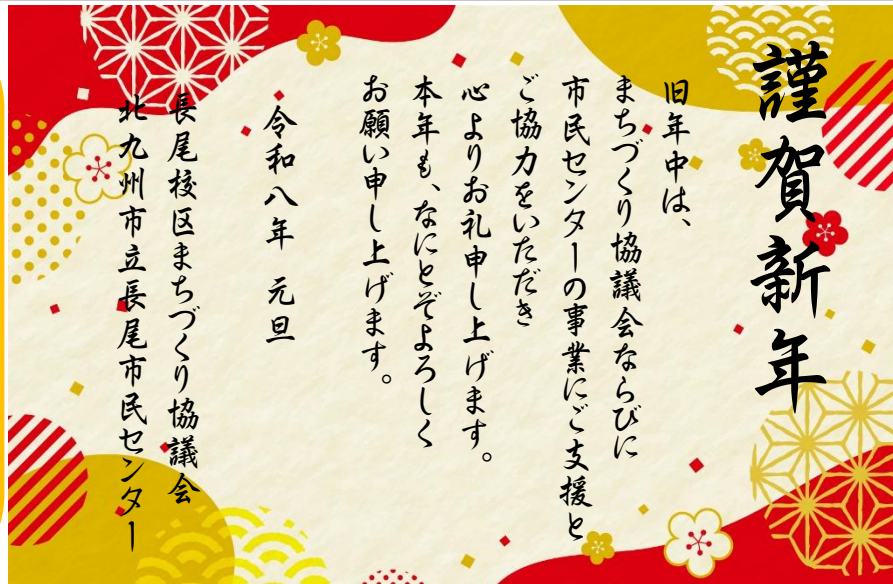 謹賀新年
旧年中は、
まちづくり協議会ならびに
市民センターの事業にご支援と
ご協力をいただき
心よりお礼申し上げます。
本年も、なにとぞよろしく
お願い申し上げます。
令和八年 元旦
長尾校区まちづくり協議会
北九州市立長尾市民センター